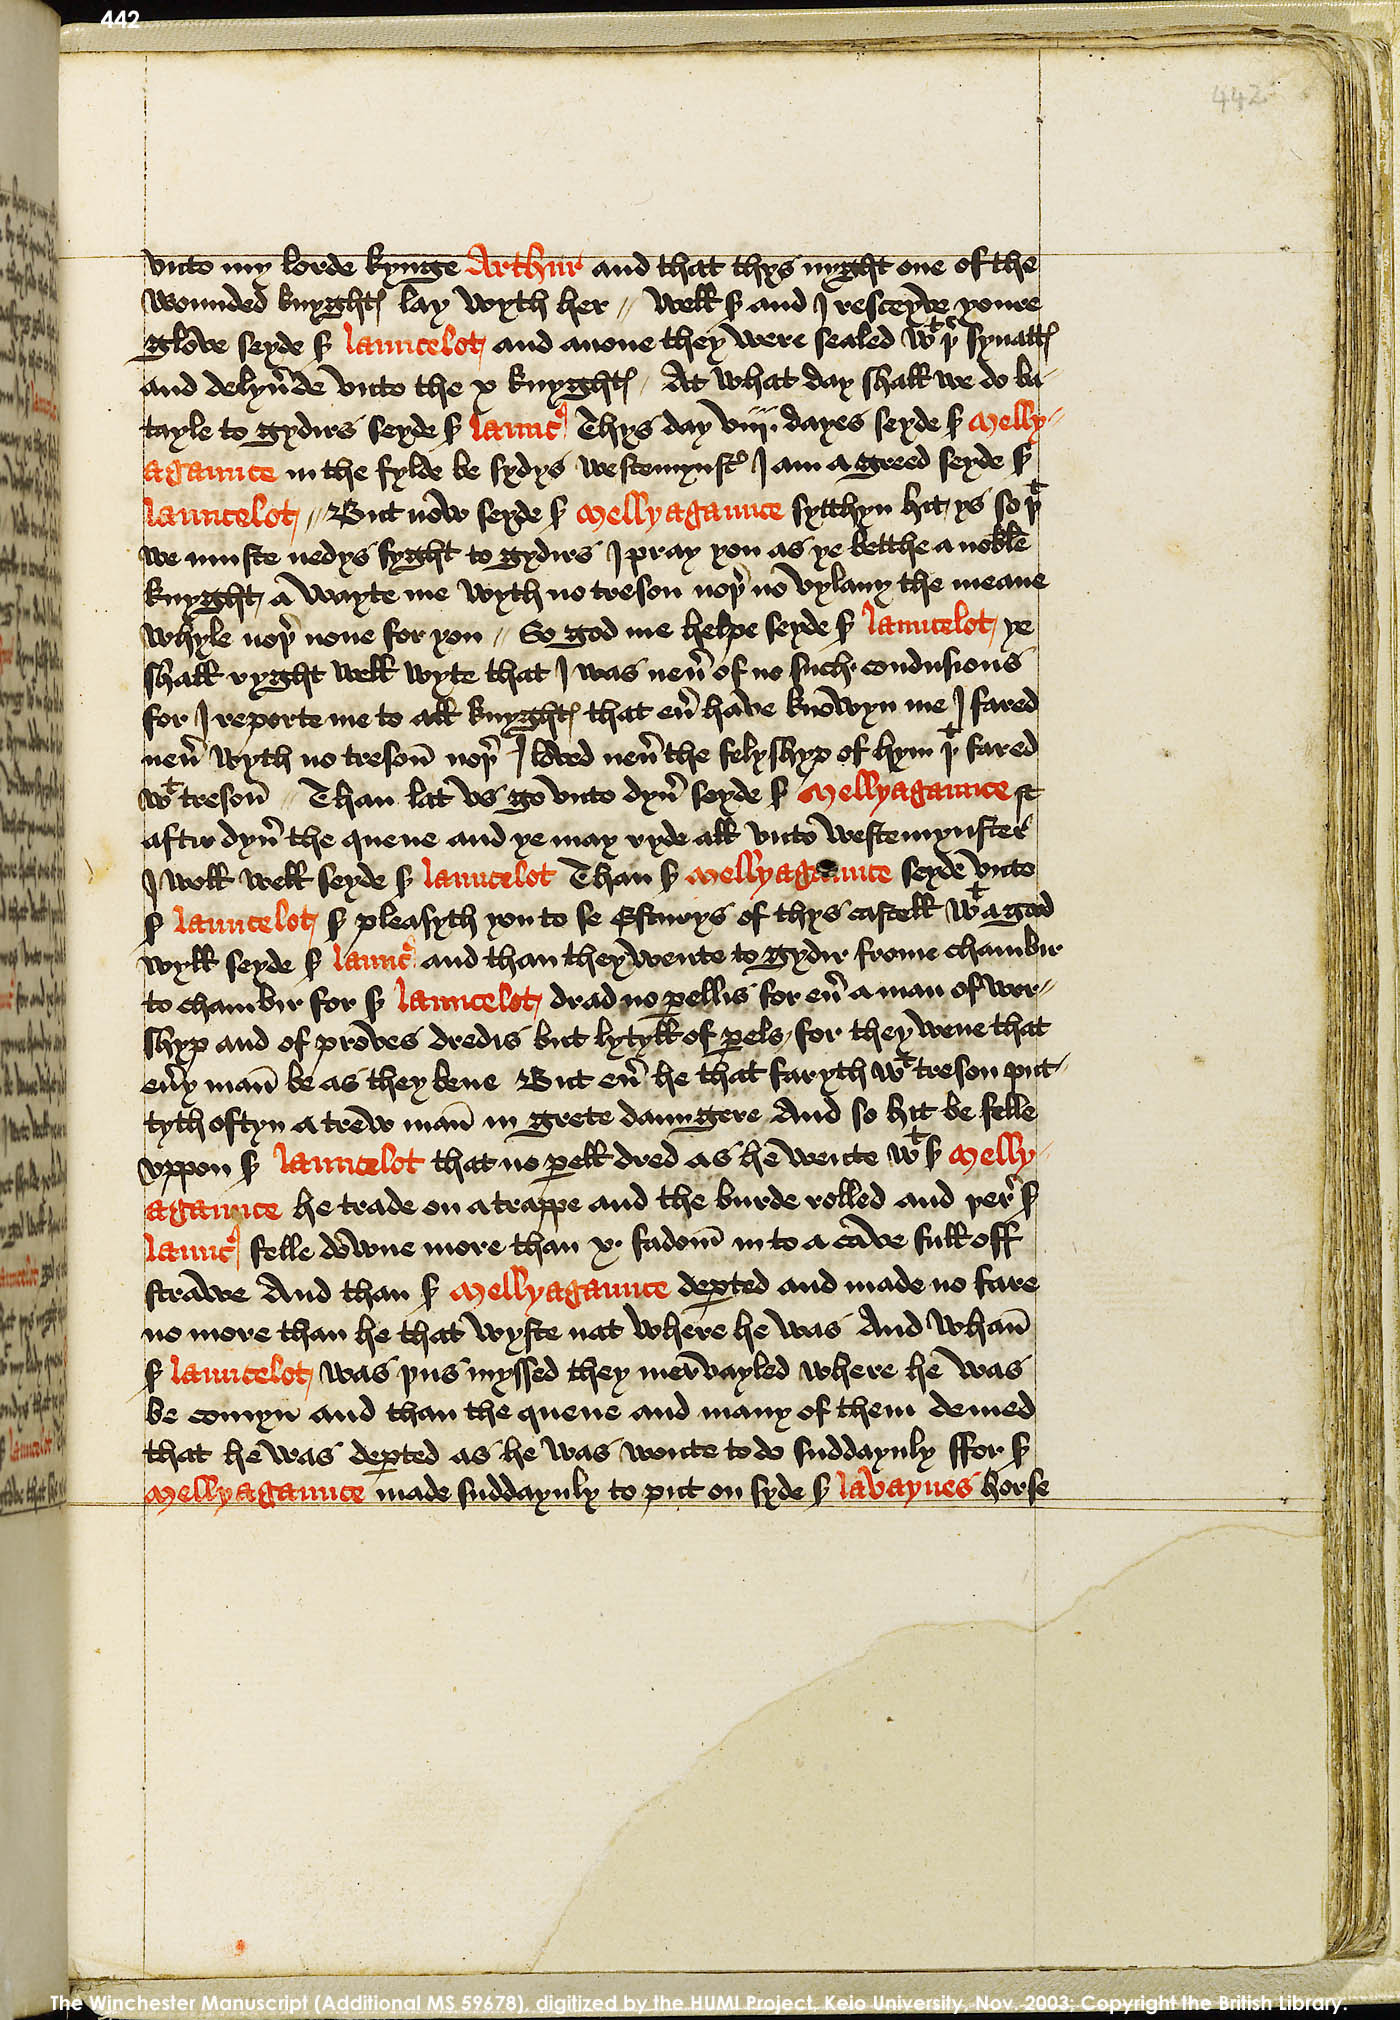 442
442
vnto my lorde kynge Arthur and that thys nyght one of the
wounded knyghtꝭ lay wyth her // Well sꝭ and I resceyve youre
glove seyde sꝭ Launcelot and anone they were sealed wᵗ þʳ synattꝭ
and delyũde vnto the x knyghtꝭ / At what day shall we do ba-
tayle to gydirs seyde sꝭ Launcꝰ Thys day viij. dayes seyde sꝭ Melly-
agaunce in the fylde be sydys westemynstꝰ I am a greed seyde sꝭ
Launcelot // But now seyde sꝭ Mellyagaunce sytthyn hit ys so þᵗ
we muste nedys fyght to gydirs I pray you as ye betthe a noble
knyght a wayte me wyth no treson noþ̉ no vylany the meane
whyle noþ̉ none for you // So god me helpe seyde sꝭ Launcelot ye
shall ryght well wyte that I was neũ of no such condusions
for I reporte me to all knyghtꝭ that eũ have knowyn me I fared
neũ wyth no treson noþ̉ I loved neũ the felyshyp of hym þᵗ fared
wᵗ treson // Than lat vs go vnto dyñ seyde sꝭ Mellyagaunce &
aftir dyñ the quene and ye may ryde all vnto westemynster
I woll well seyde sꝭ Launcelot Than sꝭ Mellyagaunce seyde vnto
sꝭ Launcelot sꝭ pleasyth you to se Esturys of thys castell wᵗ a good
wyll seyde sꝭ Launcꝰ and than they wente to gydir frome chambir
to chambir for sꝭ Launcelot drad no ꝑellis for eũ a man of wor-
shyp and of proves dredis but lytyll of ꝑels for they wene that
eũy man be as they bene But eũ he that faryth wᵗ treson put-
tyth oftyn a trew man in grete daungere And so hit be felle
vppon sꝭ Launcelot that no ꝑell dred as he wente wᵗ sꝭ Melly-
agaunce he trade on a trappe and the burde rolled and þer̉ sꝭ
Launcꝰ felle downe more than x. fadom in to a cave full off
strawe And than sꝭ Mellyagaunce deꝑted and made no fare
no more than he that wyste nat where he was And whan
sꝭ Launcelot was þus myssed they mervayled where he was
be comyn and than the quene and many of them demed
that he was deꝑted as he was wonte to do suddaynly ffor sꝭ
Mellyagaunce made suddaynly to put on syde sꝭ Lavaynes horse
The Winchester Manuscript (Additional MS 59678), digitized by the HUMI Project, Keio University, Nov. 2003; Copyright the British Library.